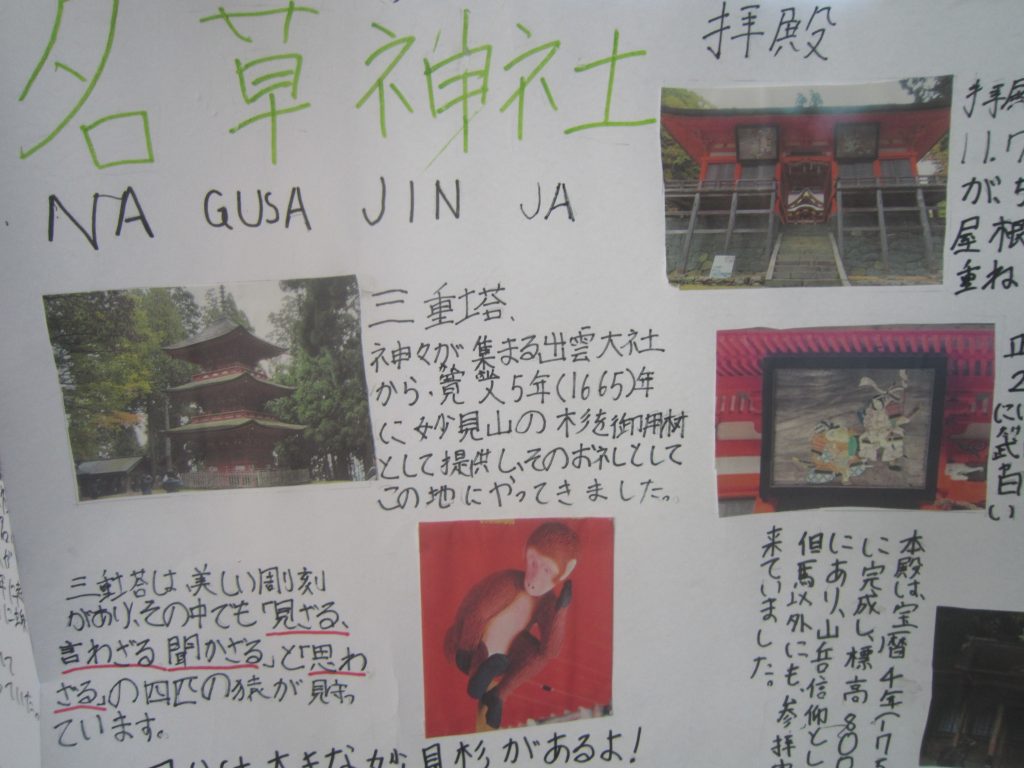 名草神社
NA GUSA JIN JA
拝殿
三重塔、
神々が集まる出雲大社
から、寛文5年(1665)年
に妙見山の杉を御用材
として提供し、そのお礼として
この地にやってきました。
三重塔は美しい彫刻
があり、その中でも「見ざる、
言わざる、聞かざる」と「思わ
ざる」の四匹の猿が
ています。
大きな妙見杉があるよ!
11.7
が、ち
屋根
重ね
本殿は、宝暦4年(175
に完成し、標高800
にあり、山岳信仰とし
但馬以外にも、参拝
来ていました。